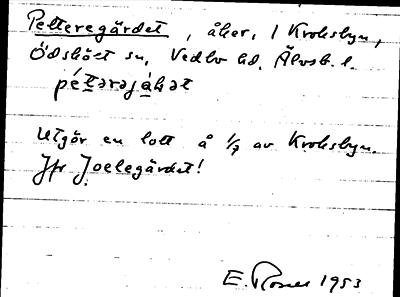 Petteregärdet, åker, i Kroksbyn,
Ödsköst sn, Vedbo hd, Älvsb. l.
pétərəjá̤kət
Utgör en lott å 1/7 av Kroksbyn.
Jfr Joelegärdet!
E. Rosell 1953